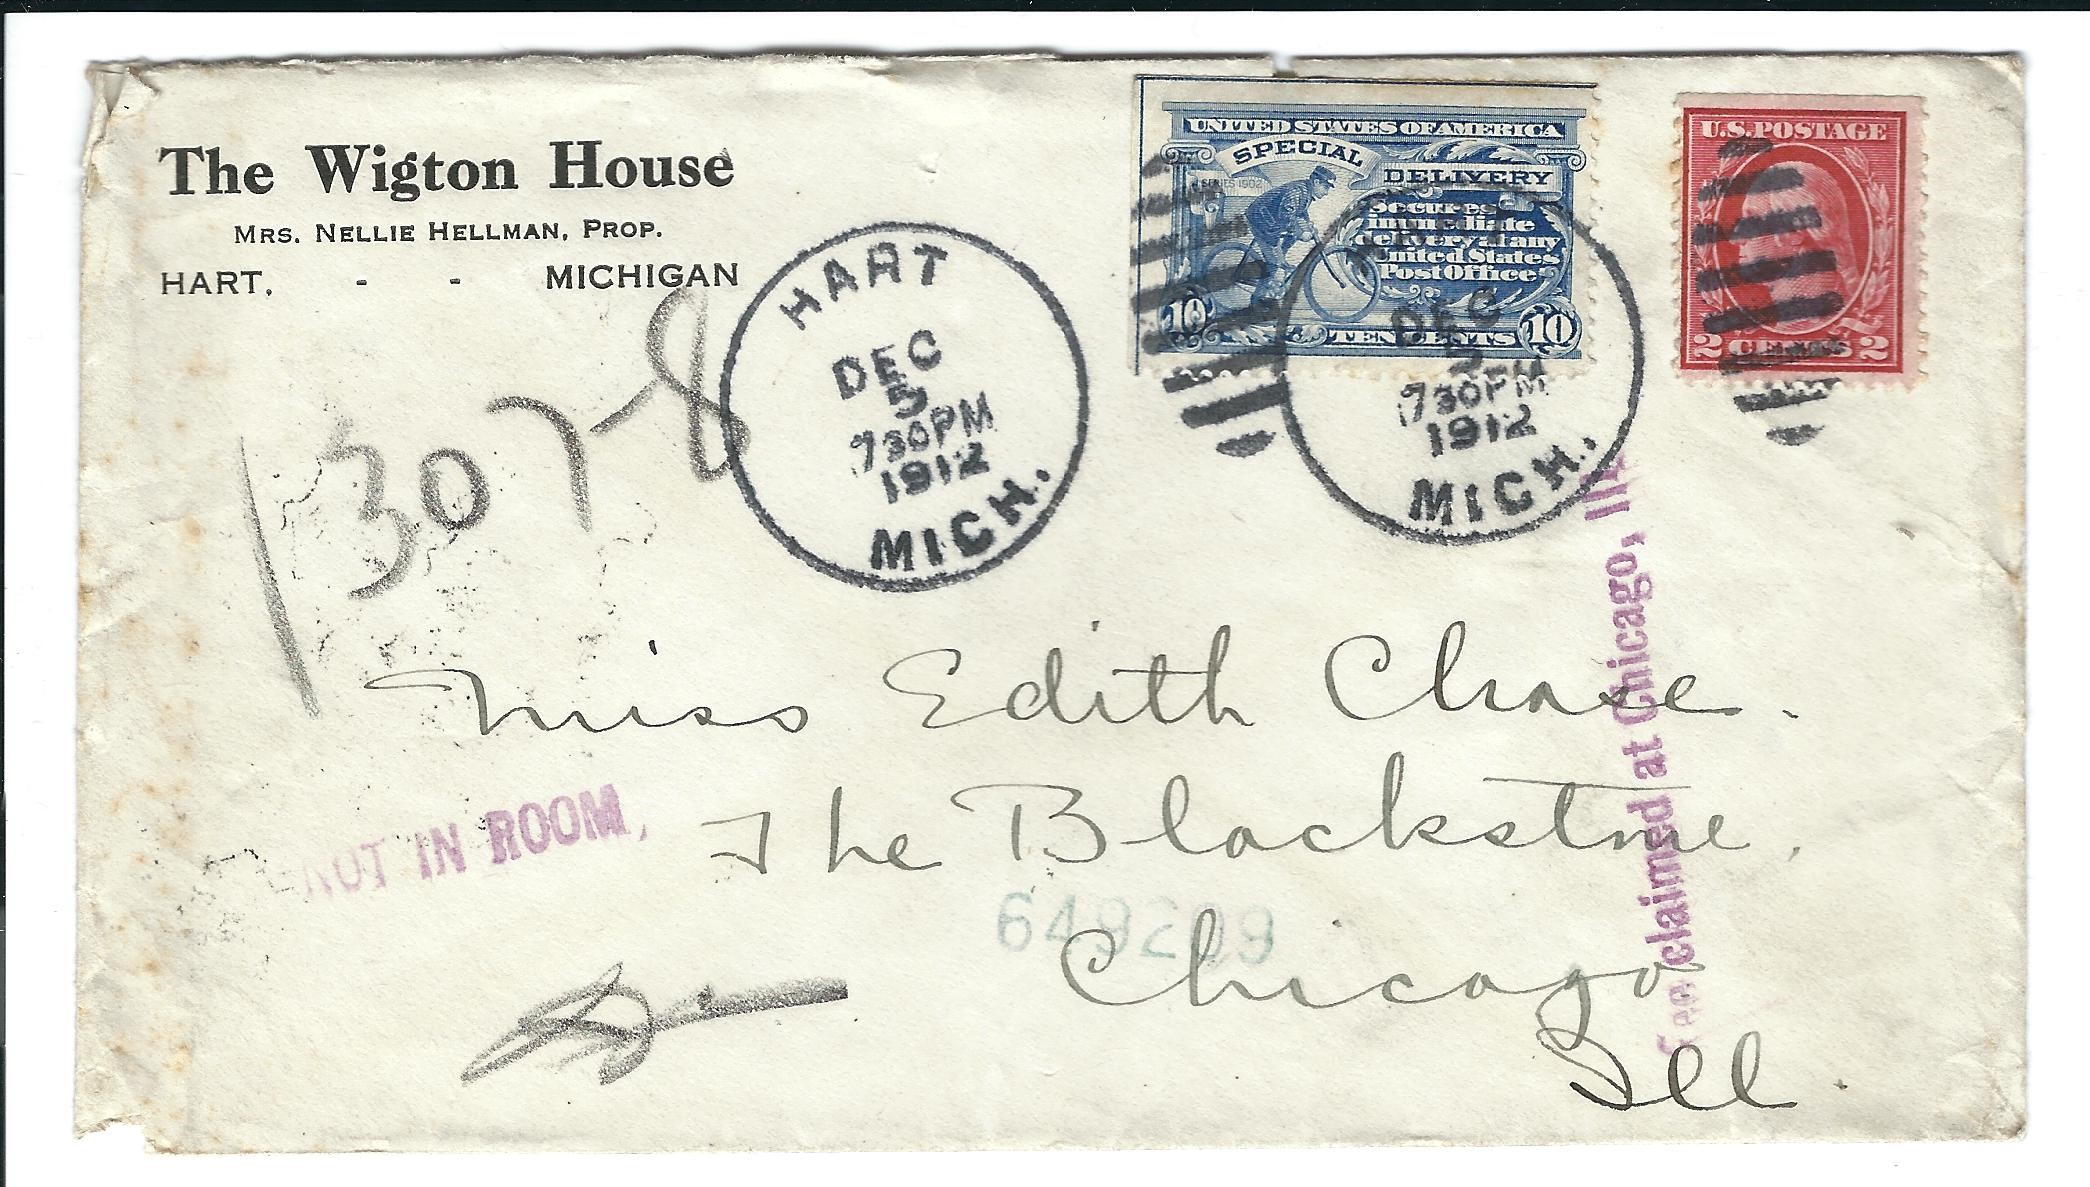 The Wigton House
MRS. NELLIE HELLMAN, PROP.
HART, - - MICHIGAN
UNITED STATES OF AMERICA
SPECIAL
DELIVERY
SERIES 1902
Secures
immediate
delivery at any
United States
Post Office
10 TEN CENTS 10
U.S. POSTAGE
2 CENTS 2
HART
DEC
5
730PM
1912
MICH.
DEC
5
730PM
1912
MICH.
1307-8
Miss Edith Chase.
NOT IN ROOM,
The Blackstone,
649209
Chicago
Ill.
Fee claimed at Chicago, Ill.